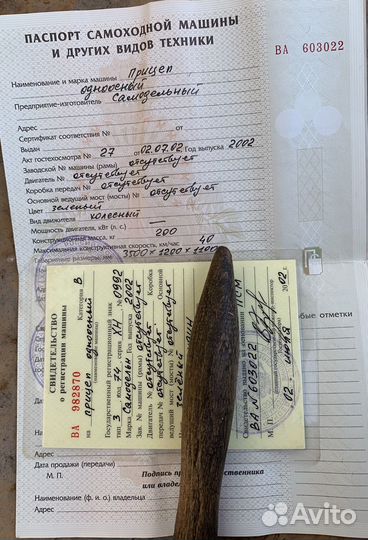 ПАСПОРТ САМОХОДНОЙ МАШИНЫ
И ДРУГИХ ВИДОВ ТЕХНИКИ
ВА 603022
Наименование и марка машины Прицеп
одноосный
Предприятие-изготовитель Самодельный
Адрес
Сертификат соответствия № от
Выдан
Акт гостехосмотра № 27 от 02.07.02 Год выпуска 2002
Заводской № машины (рамы) отсутствует
Двигатель № отсутствует
Коробка передач № отсутствует
Основной ведущий мост (мосты) № отсутствует
Цвет зеленый
Вид движителя колесный
Мощность двигателя, кВт (л. с.) —
Конструкционная масса, кг 200
Максимальная конструктивная скорость, км/час 40
Габаритные размеры, мм 3500×1200×1100
СВИДЕТЕЛЬСТВО
о регистрации машины
ВА 982870
на прицеп одноосный Категория В
Государственный регистрационный знак
тип 3 код 74 серия ХН № 0992
Марка Самодельн Год выпуска 2002
Зав. № машины (рамы) отсутствует
Двигатель № отсутствует Коробка
передач № отсутствует Основной
ведущий мост (мосты) № отсутствует
зелёный
Свидетельство выдано на основании ПСМ
ВА № 603022
М. П.
02 июля 2002 г.
особые отметки
Адрес
Дата продажи (передачи)
М. П.
Подпись ственника
или владел
Наименование (ф. и. о.) владельца
Адрес
Avito